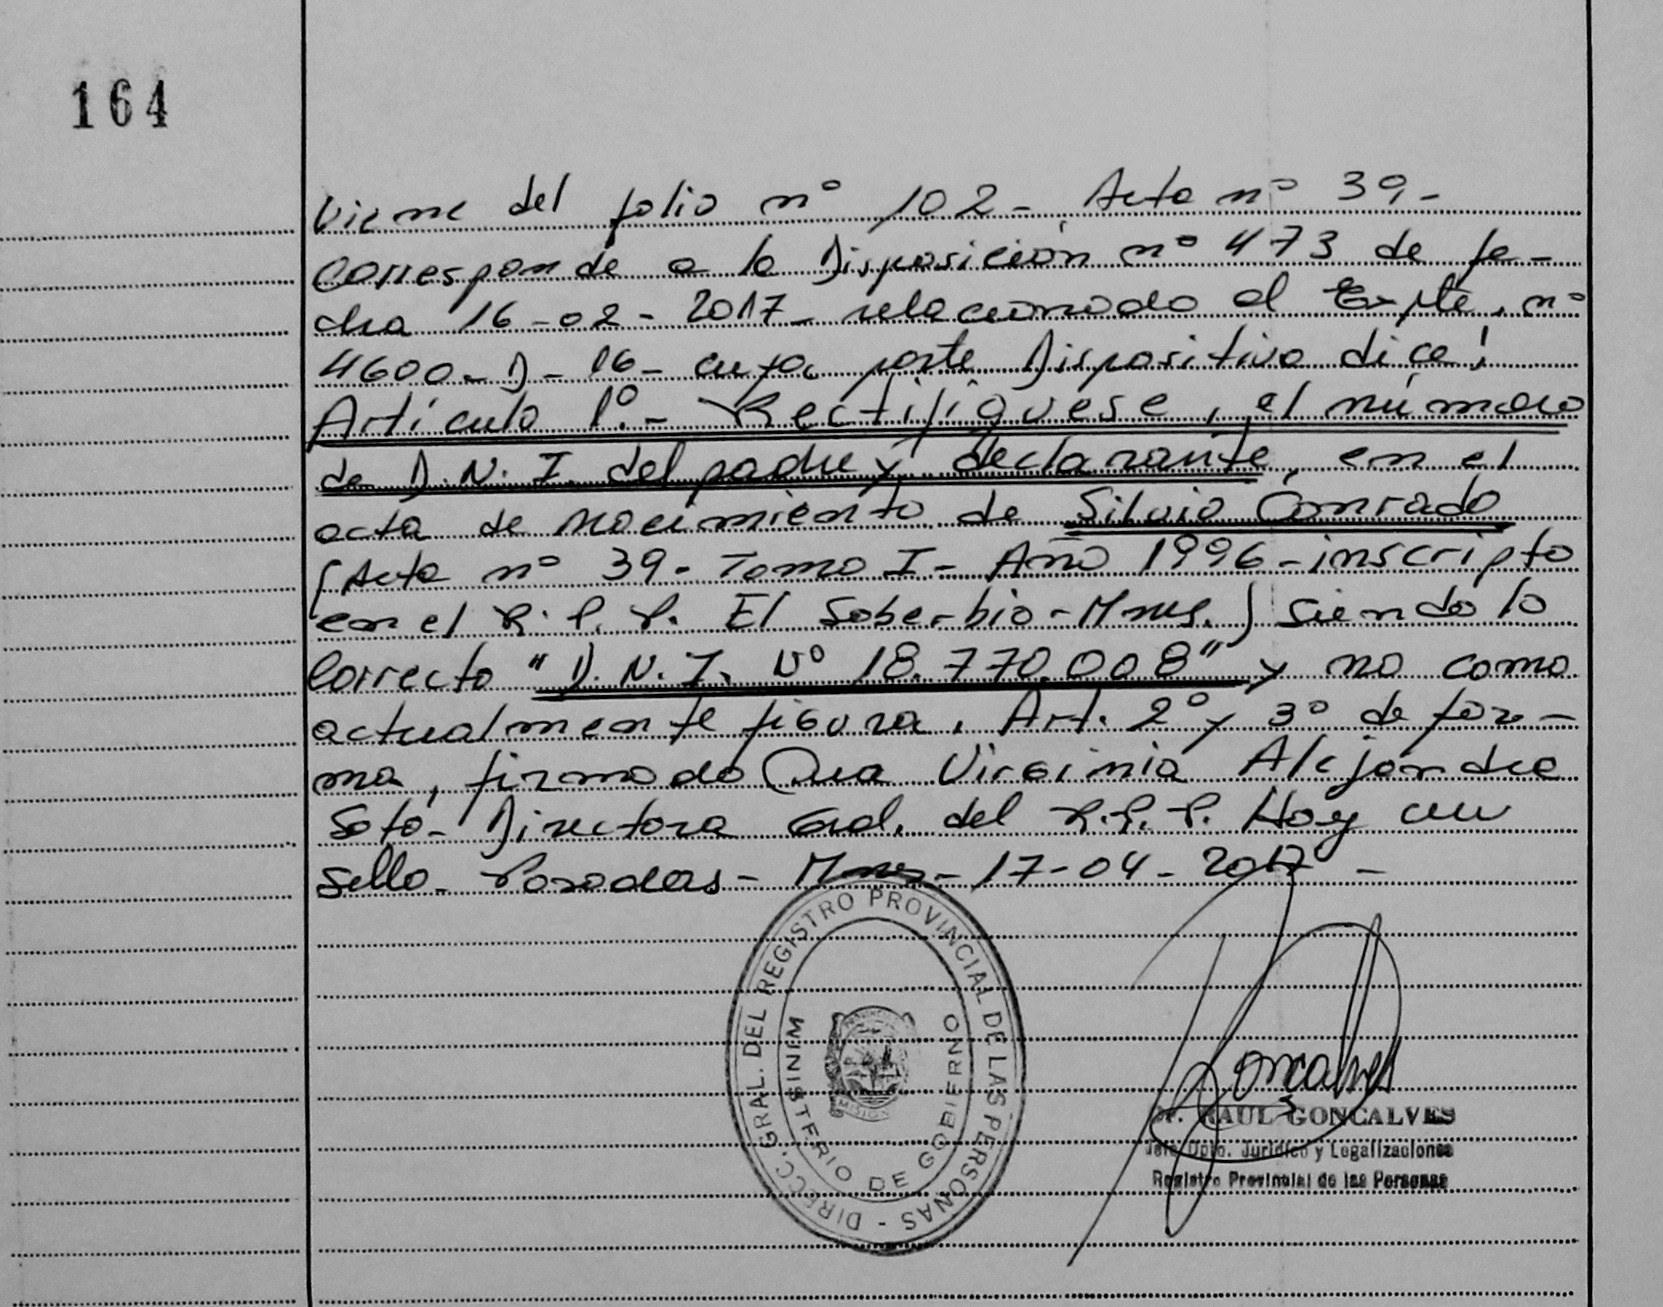 164
Viene del folio nº 102 - Acta nº 39 -
Corresponde a la Disposición nº 473 de fe-
cha 16-02-2017 - relacionado al Expte. nº
4600-D-16- cuya parte Dispositiva dice:
Artículo 1º.- Rectifíquese, el número
de D.N.I. del padre y declarante, en el
acta de nacimiento de Silvio Conrado
(Acta nº 39 - Tomo I - Año 1996 - inscripto
en el R.P.P. El Soberbio - Mnes.) siendo lo
Correcto "D.N.I. Nº 18.770.008" y no como
actualmente figura. Art. 2º y 3º de for-
ma, firmado Dra Virginia Alejandra
Soto - Directora Gral. del R.P.P. Hay un
sello - Posadas - Mnes - 17-04-2017 -
DIRECC. GRAL. DEL REGISTRO PROVINCIAL DE LAS PERSONAS -
MINISTERIO DE GOBIERNO
MISIONES
Goncalves
RAUL GONCALVES
Jefe Dpto. Jurídico y Legalizaciones
Registro Provincial de las Personas